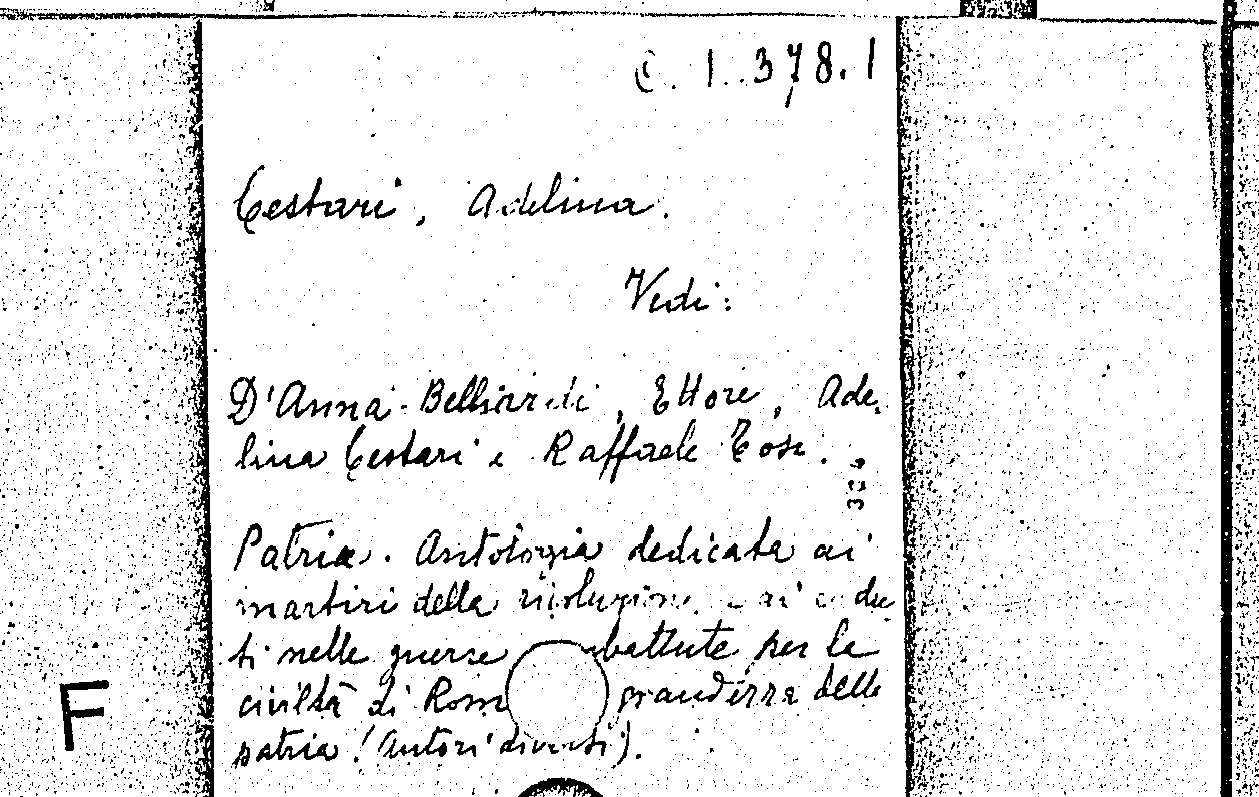 C. 1.378.1
Cestari, Adelina.
Vedi:
D'Anna-Belliardi, Ettore, Ade-
lina Cestari e Raffaele Tosi.
Patria. Antologia dedicata ai
martiri della rivoluzione e ai cadu-
ti nelle guerre battute per la
civiltà di Rom grandezza della
patria (Autori diversi).
F